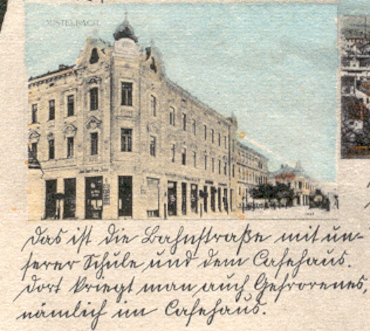 MISTELBACH
Das ist die Bahnstraße mit un-
serer Schule und dem Cafehaus.
Dort kriegt man auch Gefrorenes,
nämlich im Cafehaus.